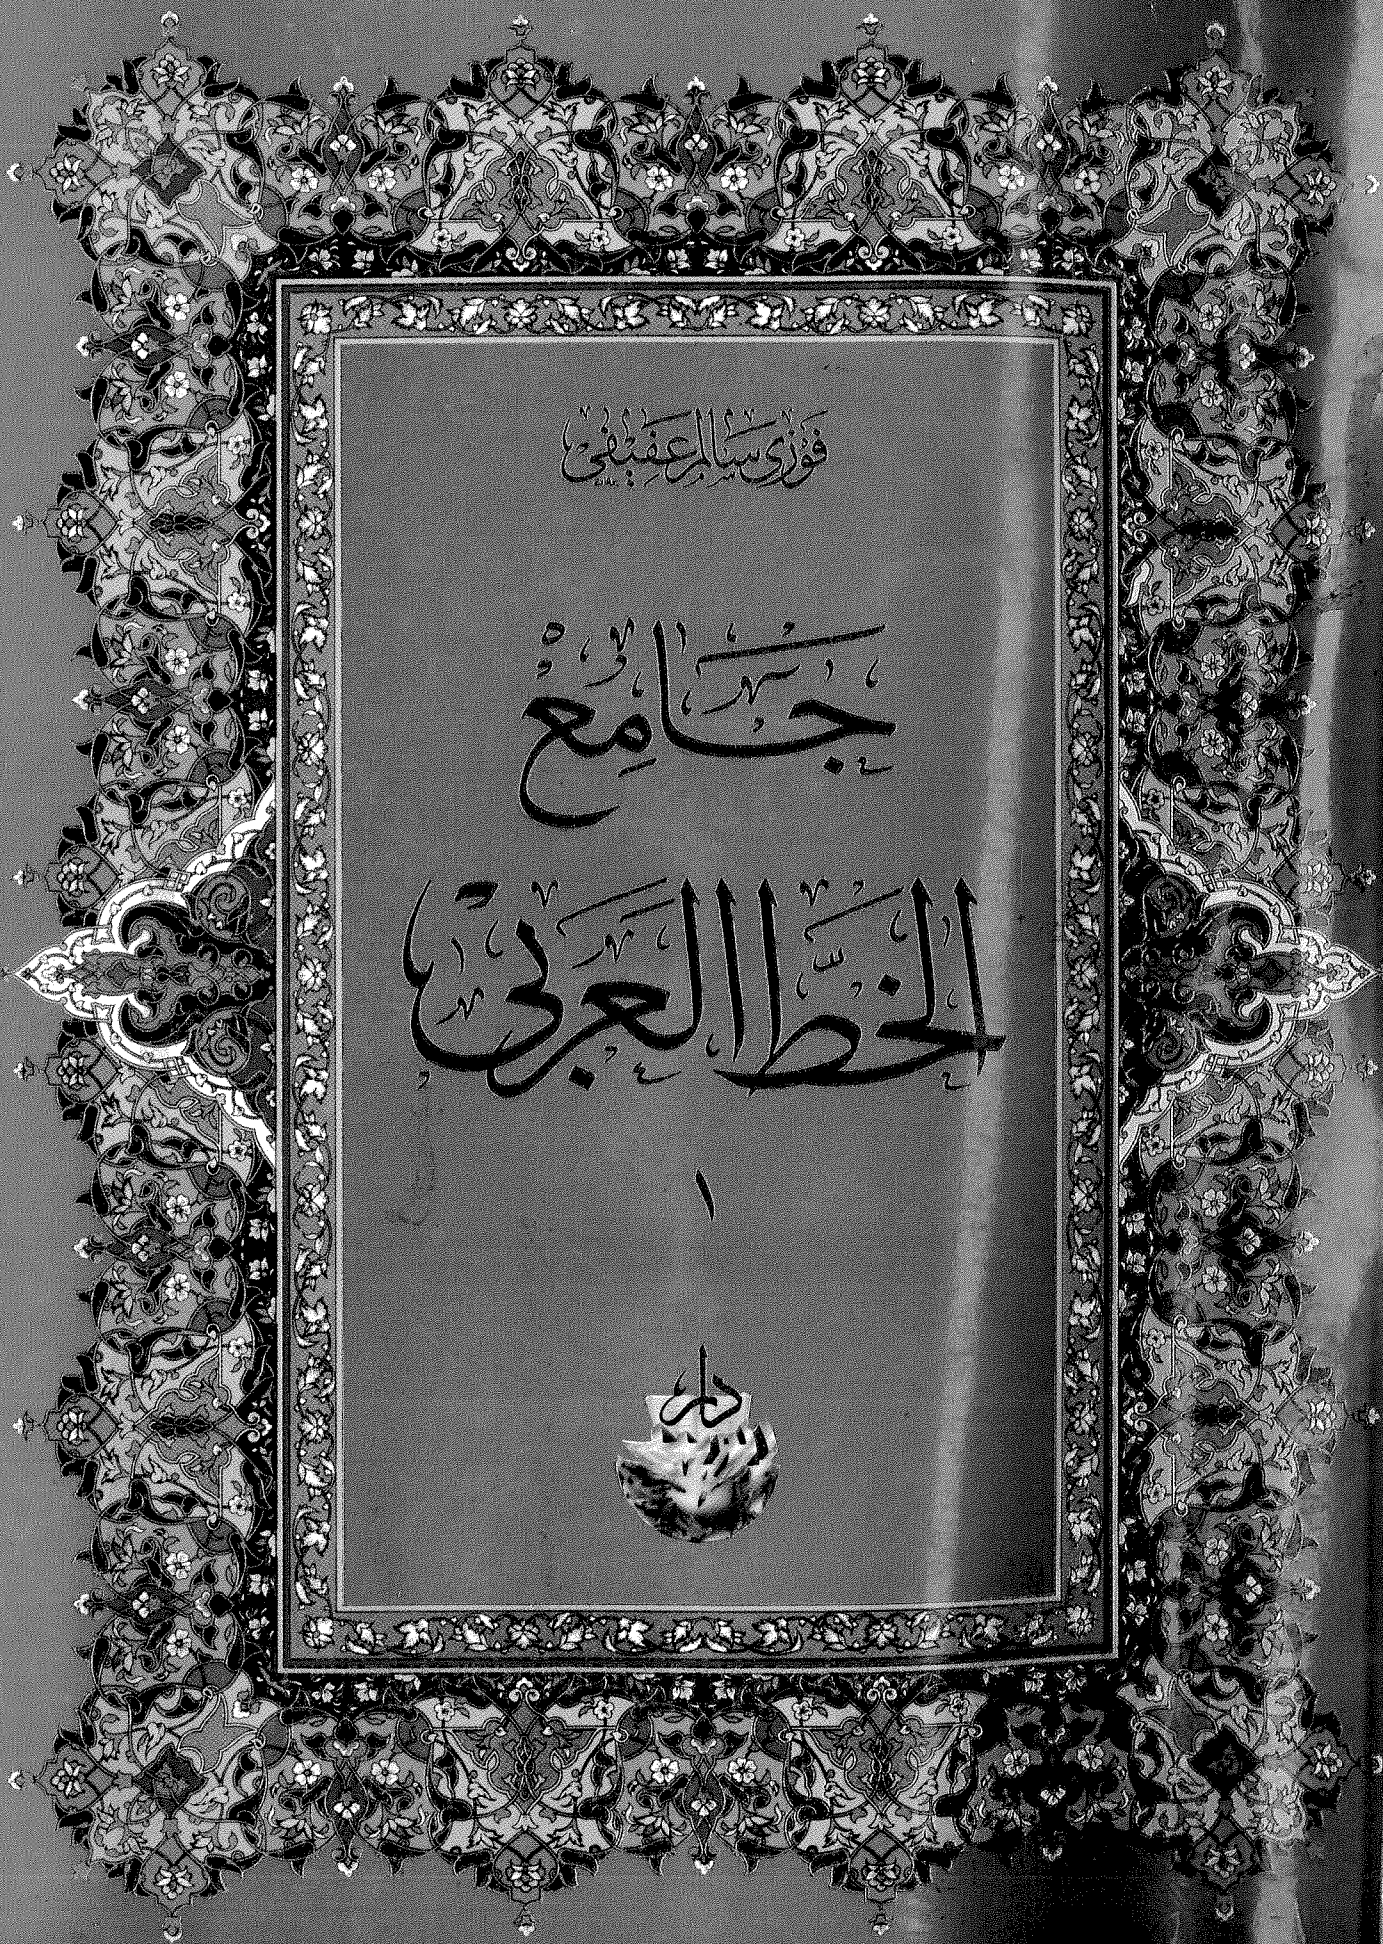 فوزي سالم عفيفي
جامع
الخط العربي
١
دار